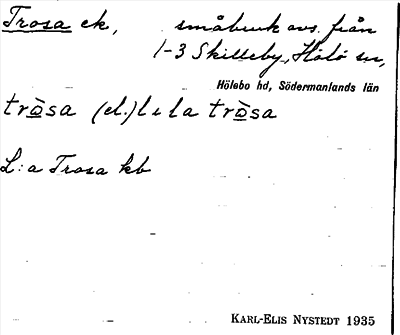 Trosa ek, småbruk avs. från
1-3 Skilleby, Hölö sn,
Hölebo hd, Södermanlands län
trò̲sa (el.) lıla trò̲sa
L:a Trosa kb
KARL-ELIS NYSTEDT 1935